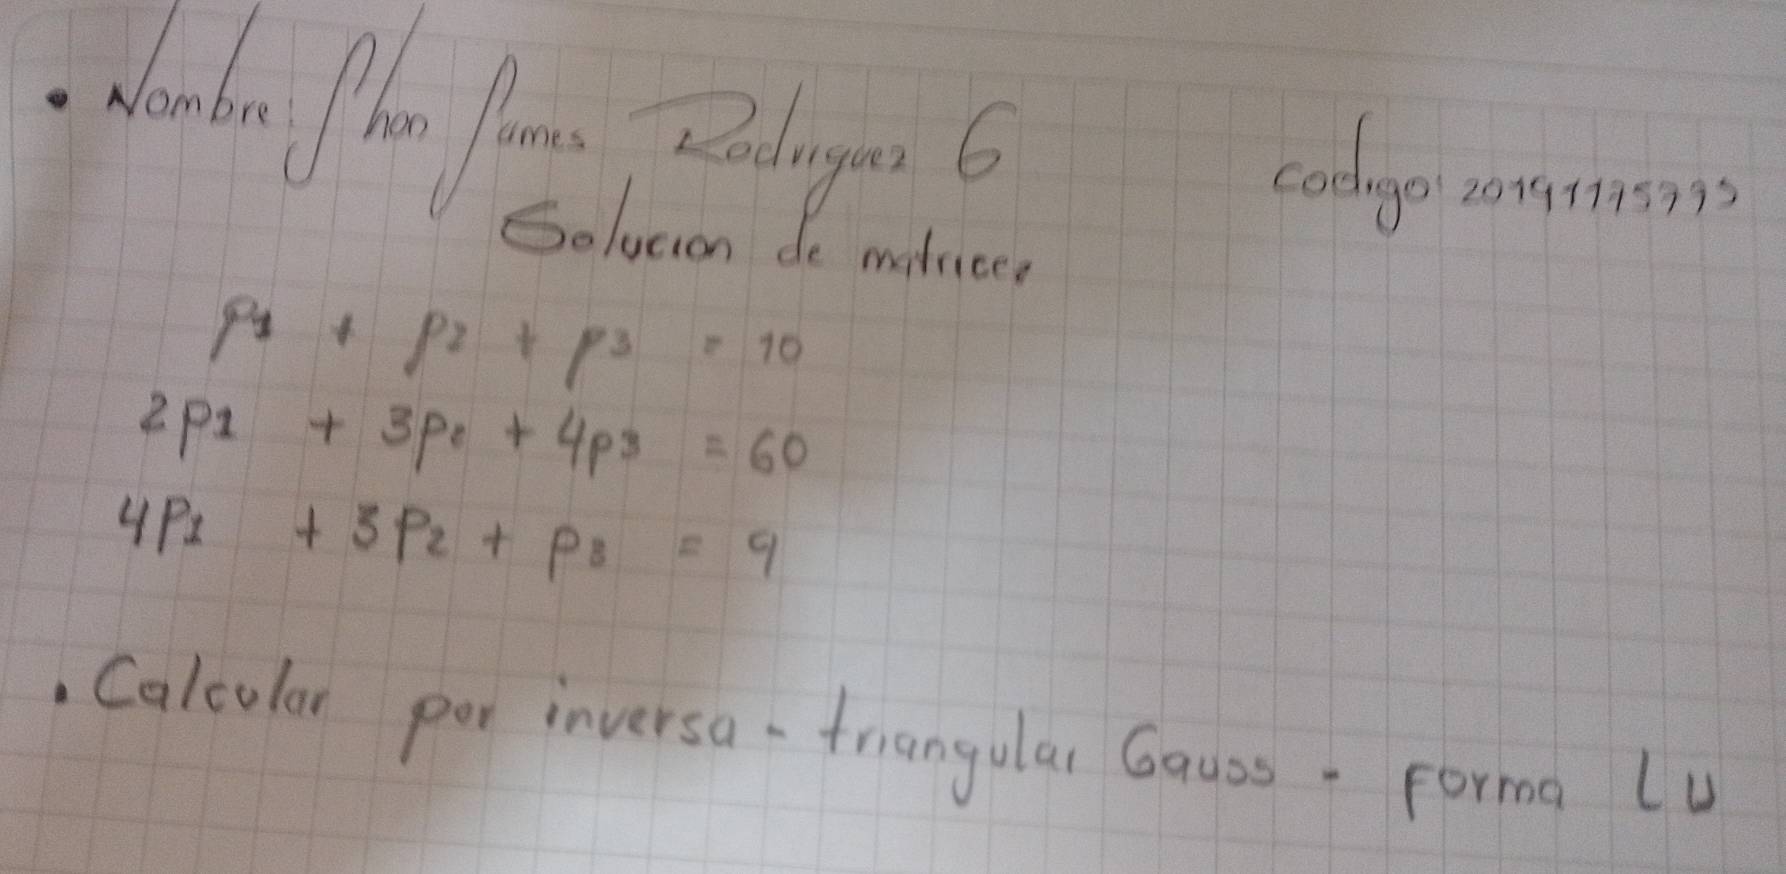 • Nombre: Jhon James Rodriguez G codigo: 20191175795
Solucion de matrices
P1 + P2 + P3 = 10
2P1 + 3P2 + 4P3 = 60
4P1 + 3P2 + P3 = 9
• Calcular por inversa - triangular Gauss - Forma LU